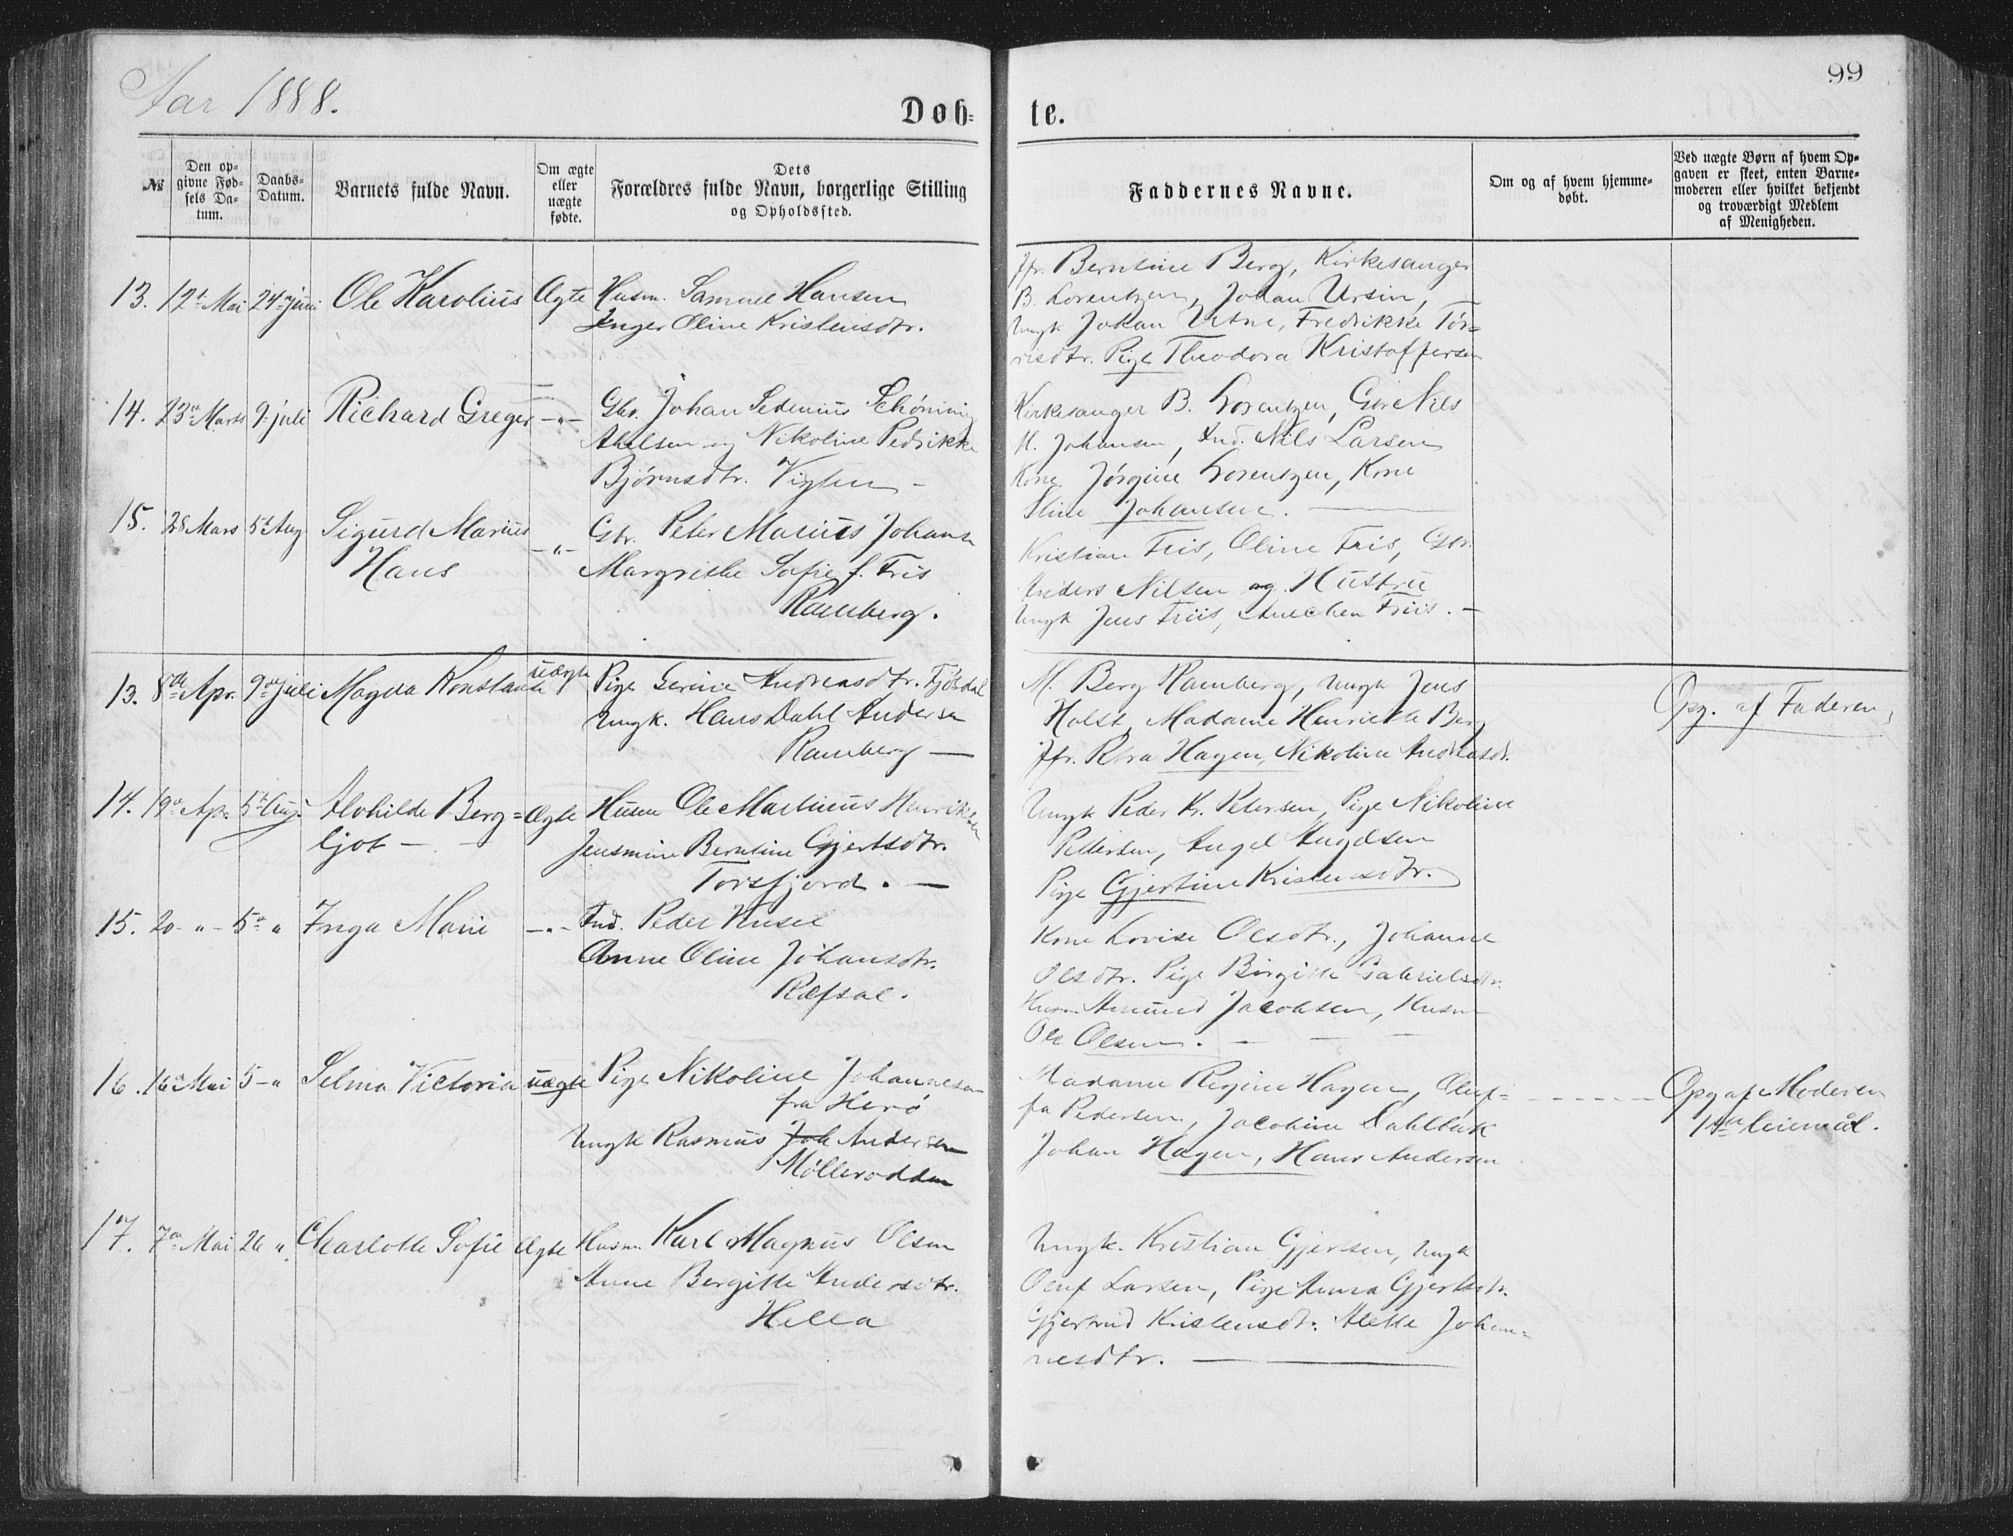 Aar 1888.
99
Døb-
te.
No
Den opgivne Fødsels Datum.
Daabs-Datum.
Barnets fulde Navn.
Om ægte eller uægte fødte.
Dets Forældres fulde Navn, borgerlige Stilling og Opholdssted.
Faddernes Navne.
Om og af hvem hjemmedøbt.
Ved uægte Børn af hvem Opgaven er skeet, enten Barnemoderen eller hvilket bekjendt og troværdigt Medlem af Menigheden.
13. 12t Mai 24 juni Ole Karolius Ægte Husm. Samuel Hansen
Inger Oline Kristensdtr.
Jfr. Berntine Berg, Kirkesanger
B. Lorentzen, Johan Ursin,
Ungk Johan Fredrikke Tør-
risdtr. Pige Theodora Kristoffersen
14. 23 Marts 9 juli Richard Greger -"- Gbr. Johan Sedenius Schøning
Abelsen og Nikoline Pedrikke
Bjørnsdtr. Vigten -
Kirkesanger B. Lorentzen, Gbr Nils
H. Johansen, Ind. Nils Larsen
Kone Jørgine Lorentzen, Kone
Stine Johansen.
15. 28 Mars 5t Aug Sigurd Marius
Hans
-"- Gbr. Peter Marius Johans
Margrethe Sofie f. Friis
Ramberg.
Kristian Friis, Oline Friis, Gbr.
Anders Nilsen og Hustru
Ungk Jens Friis, Anechen Friis. -
13. 8de Apr. 9de juli Magda Konstanse uægte Pige Serine Andreasdtr. Fjøsdal
Ungk. Hans Dahl Andersen
Ramberg -
M. Berg Ramberg, Ungk Jens
Holst, Madame Henriette Berg
Jfr. Petra Hagen, Nikoline Andreasdtr.
Opg. af Faderen,
14. 19 Apr. 5t Aug. Alvhilde Berg-
ljot -
Ægte Husm Ole Martinus Henriksen
Jensmine Berntine Gjertsdtr.
Torsfjord. -
Ungk Peder Kr. Petersen, Pige Nikoline
Pettersen, Angel Angelsen
Pige Gjertine Kristensdtr.
15. 20 - " - 5te " Inga Marie -"- Ind. Peder Husel
Anne Oline Johansdtr.
Refsal.
Kone Lovise Olsdtr., Johanne
Olsdtr. Pige Birgitte Gabrielsdtr.
Husm Amund Jacobsen, Husm
Ole Olsen. -
16. 16 Mai 5 - " Selma Victoria uægte Pige Nikoline Johannesen
fra Herø
Ungk Rasmus Joh Andersen
Mølleroddan
Madame Regine Hagen, Oluf-
fa Pedersen, Jacobine Dahlbak
Johan Hagen, Hans Andersen
Opg af Moderen
1ste leiermål.
17. 7de Mai 26 " Charlotte Sofie Ægte Husm. Karl Magnus Olsen
Anne Bergitte Andersdtr.
Hella
Ungk. Kristian Gjertsen, Ungk
Oluf Larsen, Pige Anna Gjertsdtr.
Gjertrud Kristensdtr. Alette Johan-
nesdtr.